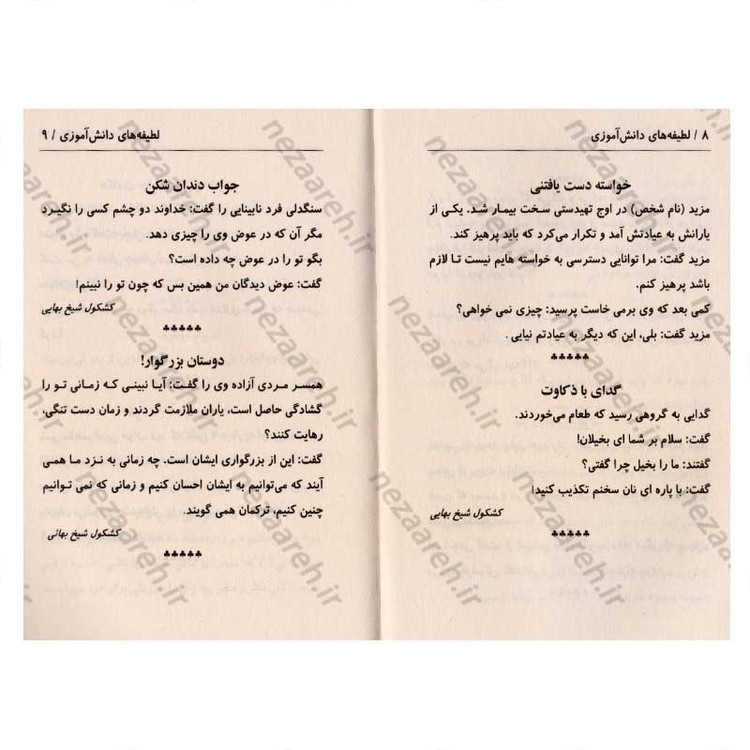 ۸ / لطیفه‌های دانش‌آموزی
خواسته دست یافتنی
مزید (نام شخص) در اوج تهیدستی سخت بیمار شد. یکی از
یارانش به عیادتش آمد و تکرار می‌کرد که باید پرهیز کند.
مزید گفت: مرا توانایی دسترسی به خواسته هایم نیست تا لازم
باشد پرهیز کنم.
کمی بعد که وی برمی خاست پرسید: چیزی نمی خواهی؟
مزید گفت: بلی، این که دیگر به عیادتم نیایی .
♣♣♣♣♣
گدای با ذکاوت
گدایی به گروهی رسید که طعام می‌خوردند.
گفت: سلام بر شما ای بخیلان!
گفتند: ما را بخیل چرا گفتی؟
گفت: با پاره ای نان سخنم تکذیب کنید!
کشکول شیخ بهایی
♣♣♣♣♣
لطیفه‌های دانش‌آموزی / ۹
جواب دندان شکن
سنگدلی فرد نابینایی را گفت: خداوند دو چشم کسی را نگیرد
مگر آن که در عوض وی را چیزی دهد.
بگو تو را در عوض چه داده است؟
گفت: عوض دیدگان من همین بس که چون تو را نبینم!
کشکول شیخ بهایی
♣♣♣♣♣
دوستان بزرگوار!
همسر مردی آزاده وی را گفت: آیا نبینی که زمانی تو را
گشادگی حاصل است، یاران ملازمت گردند و زمان دست تنگی،
رهایت کنند؟
گفت: این از بزرگواری ایشان است. چه زمانی به نزد ما همی
آیند که می‌توانیم به ایشان احسان کنیم و زمانی که نمی توانیم
چنین کنیم، ترکمان همی گویند.
کشکول شیخ بهائی
♣♣♣♣♣
nezaareh.ir